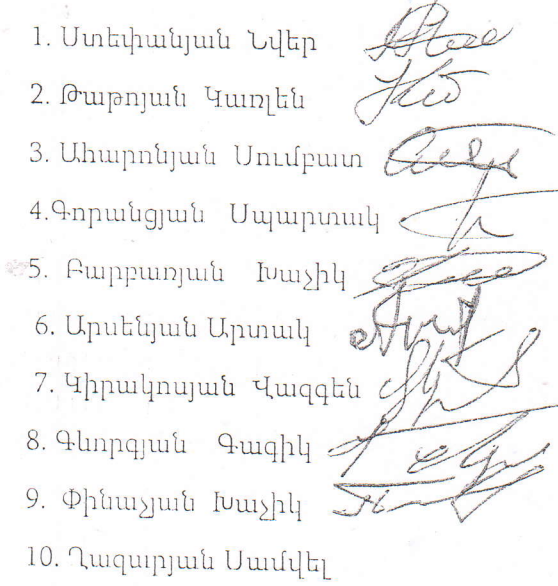 1. Ստեփանյան Նվեր
2. Թաթոյան Կառլեն
3. Ահարոնյան Սումբատ
4.Գորանցյան Սպարտակ
5. Բարբառյան Խաչիկ
6. Արսենյան Արտակ
7. Կիրակոսյան Վազգեն
8. Գևորգյան Գագիկ
9. Փինաչյան Խաչիկ
10. Ղազարյան Սամվել